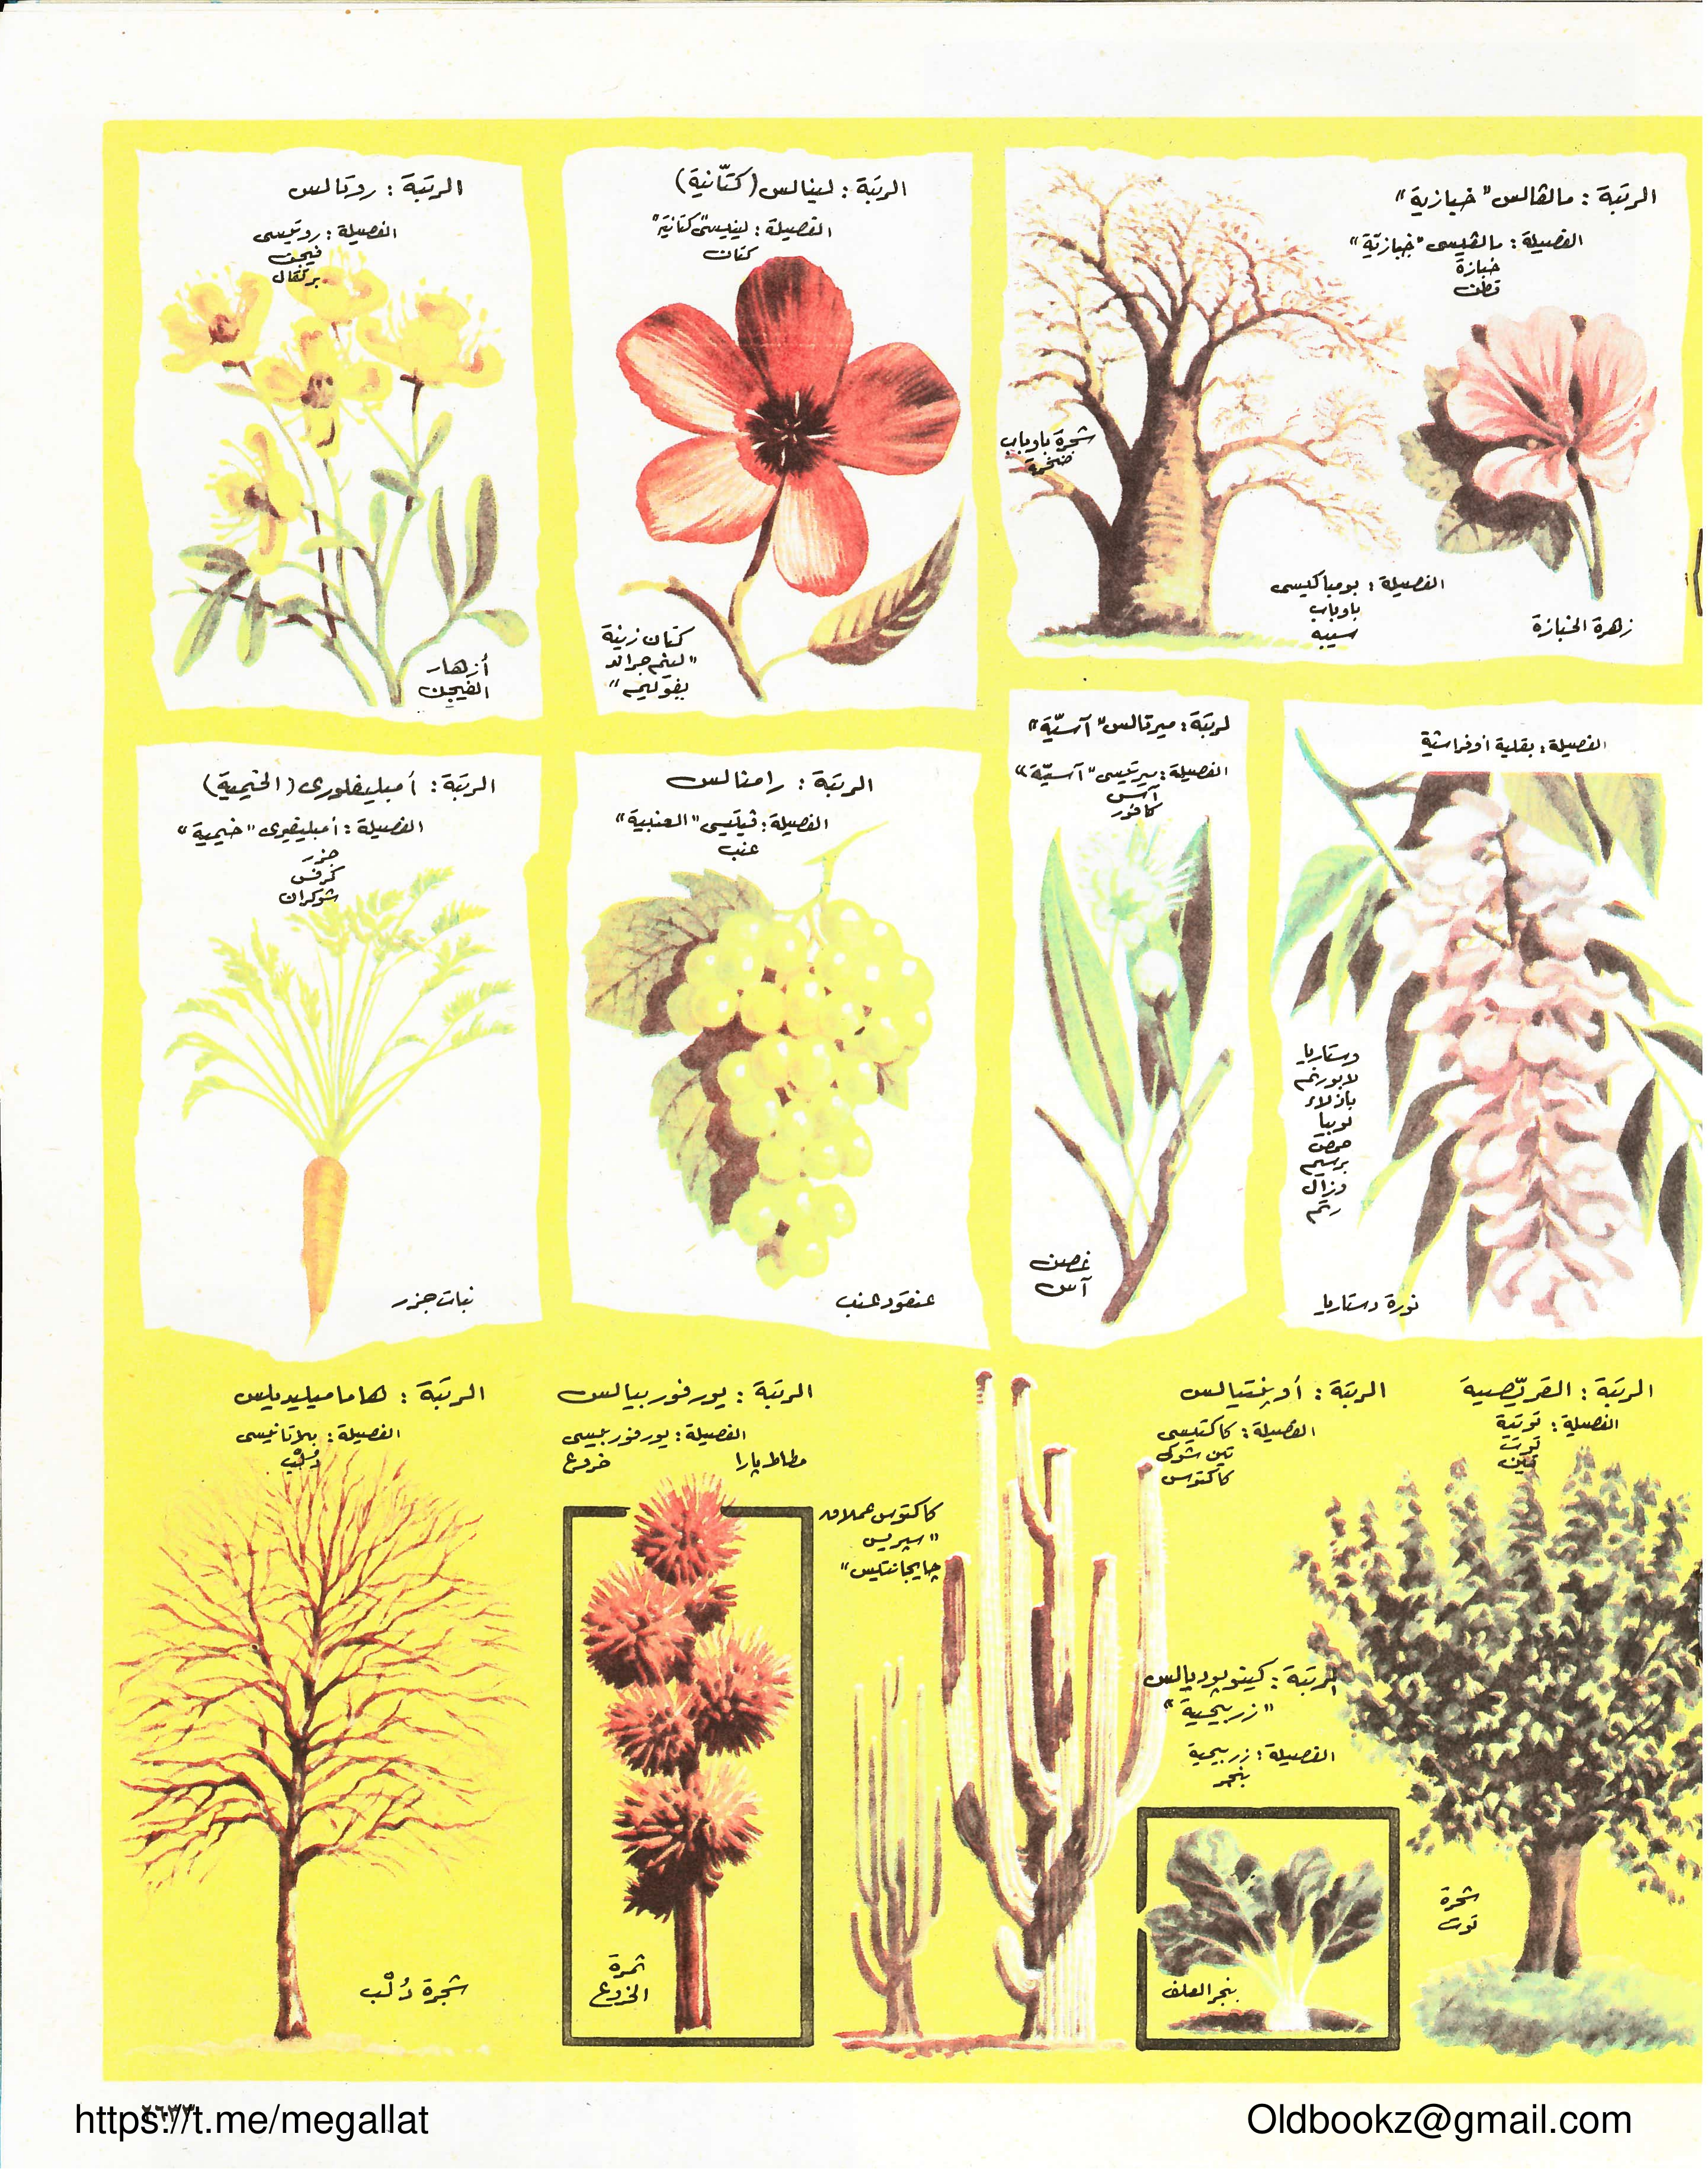 الرتبة : مالفالس "خبازية"
الفصيلة : مالفيسى "خبازيّة"
خبازة
قطن
شجرة باوباب
ضخمة
الفصيلة : بومباكيسى
باوباب
سيبه
زهرة الخبازة
الرتبة : لينالس (كتّانية)
الفصيلة : لينيسى "كتانية"
كتان
كتان زينة
"لينم جراند
يفوليم"
الرتبة : روتالس
الفصيلة : روتيسى
فيجن
برتقال
أزهار
الفيجن
الفصيلة : بقلية أوفراشية
وستاريا
لابورنم
بازلاء
لوبيا
حمص
برسيم
وزال
رتم
نورة وستاريا
لرتبة : ميرتالس "آسيّة"
الفصيلة : ميرتيسى "آسيّة"
آس
كافور
غصن
آس
الرتبة : رامنالس
الفصيلة : فيتيسى "العنبية"
عنب
عنقود عنب
الرتبة : أمبليفلورى (الخيمية)
الفصيلة : أمبليفرى "خيمية"
جزر
كرفس
شوكران
نبات جزر
الرتبة : القرّيصية
الفصيلة : توتية
توت
تين
شجرة
توت
الرتبة : أوبنتيالس
الفصيلة : كاكتيسى
تين شوكى
كاكتوس
كاكتوس عملاق
"سيريس
چايجانتيس"
الرتبة : كينوپوديالس
"زربيحية"
الفصيلة : زربيحية
بنجر
بنجر العلف
الرتبة : يورفوربيالس
الفصيلة : يورفوربيسى
مطاط پارا
خروع
ثمرة
الخروع
الرتبة : هاماميليديلس
الفصيلة : بلاتانيسى
دُلْب
شجرة دُلْب
٢٦٣٣
https://t.me/megallat
Oldbookz@gmail.com